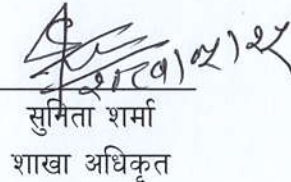 सुमिता शर्मा
शाखा अधिकृत